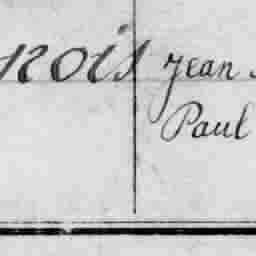 nois Jean
Paul